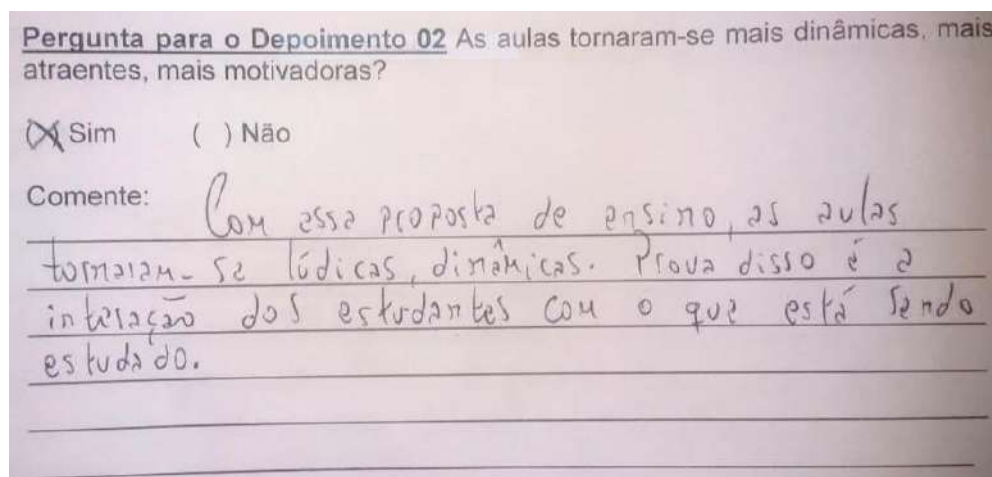 Pergunta para o Depoimento 02 As aulas tornaram-se mais dinâmicas, mais
atraentes, mais motivadoras?
(X) Sim ( ) Não
Comente: Com essa proposta de ensino, as aulas
tornaram-se lúdicas, dinâmicas. Prova disso é a
interação dos estudantes com o que está sendo
estudado.